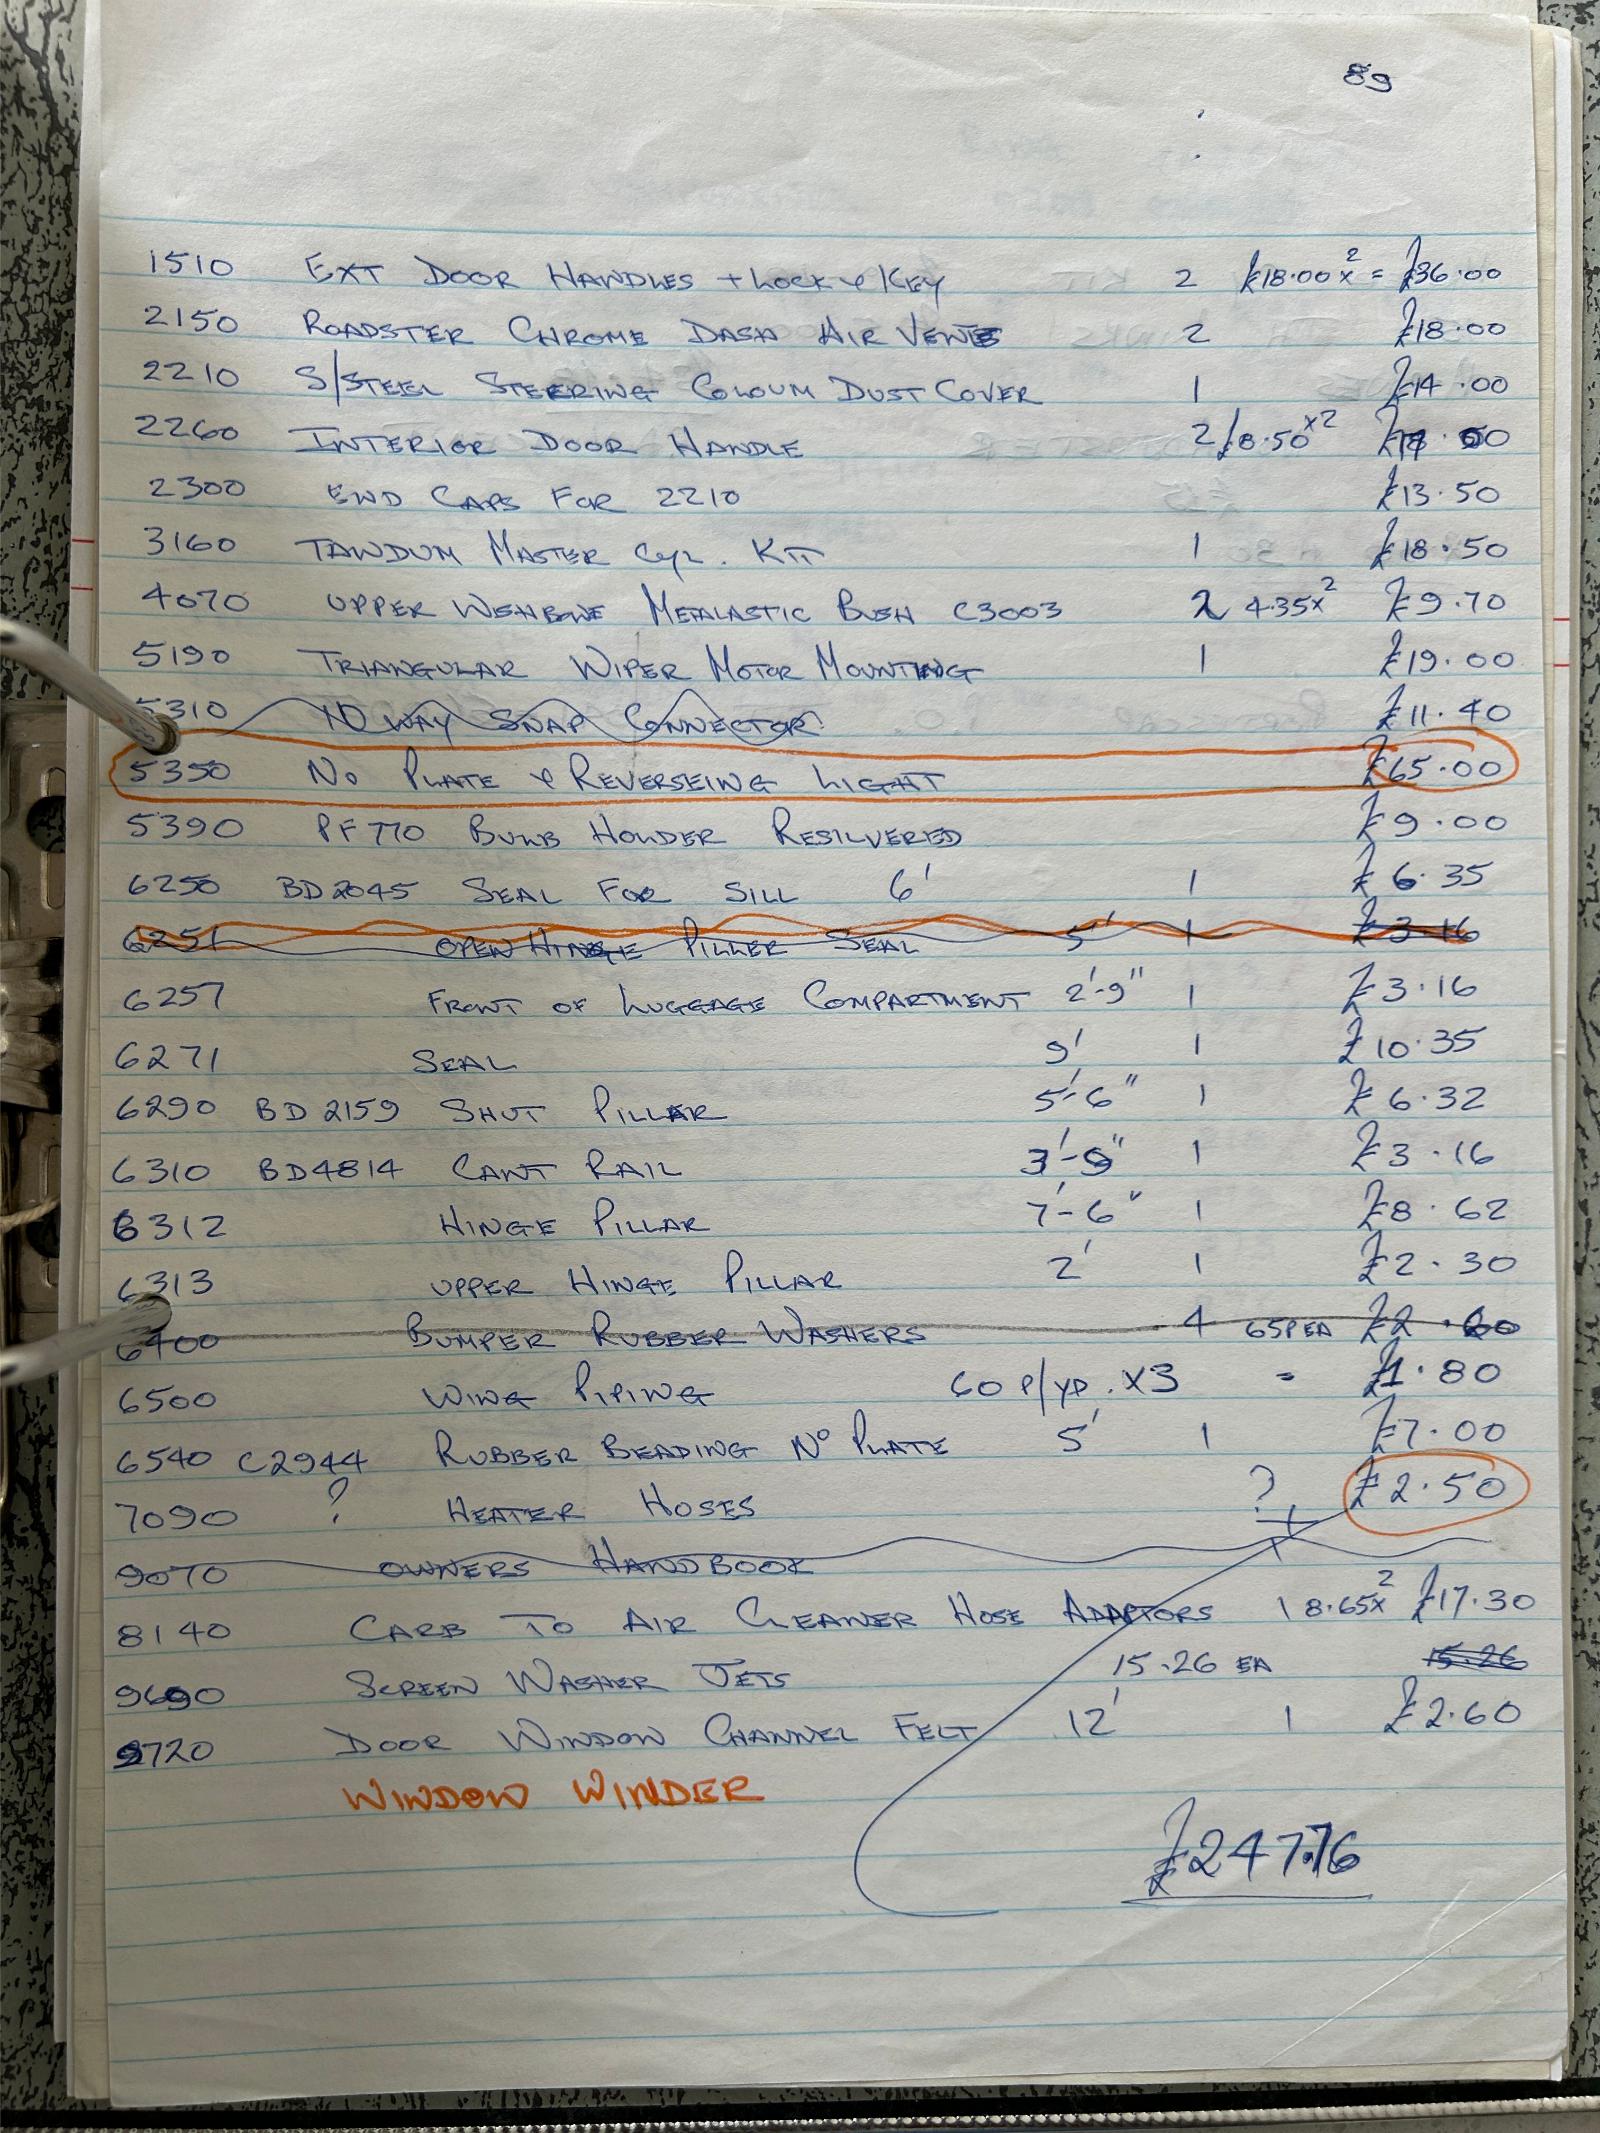 89
1510 EXT DOOR HANDLES + LOCK & KEY 2 £18.00 x 2 = £36.00
2150 ROADSTER CHROME DASH AIR VENTS 2 £18.00
2210 S/STEEL STEERING COLOUM DUST COVER 1 £14.00
2260 INTERIOR DOOR HANDLE 2 /8.50 x2
2300 END CAPS FOR 2210 £13.50
3160 TANDUM MASTER CYL. KIT 1 £18.50
4070 UPPER WISHBONE METALASTIC BUSH C3003 2 4.35 x 2 £9.70
5190 TRIANGULAR WIPER MOTOR MOUNTING 1 £19.00
5310 10 WAY SNAP CONNECTOR £11.40
5350 No PLATE & REVERSEING LIGHT £65.00
5390 PF770 BULB HOLDER RESILVERED £9.00
6250 BD2045 SEAL FOR SILL 6' 1 £6.35
6251 OPEN HINGE PILLER SEAL 5' 1 £3.16
6257 FRONT OF LUGGAGE COMPARTMENT 2'-9" 1 £3.16
6271 SEAL 9' 1 £10.35
6290 BD2159 SHUT PILLAR 5'-6" 1 £6.32
6310 BD4814 CANT RAIL 3'-9" 1 £3.16
6312 HINGE PILLAR 7'-6" 1 £8.62
6313 UPPER HINGE PILLAR 2' 1 £2.30
6400 BUMPER RUBBER WASHERS 4 65P EA £2.60
6500 WING PIPING 60 P/YD. X3 = £1.80
6540 C2944 RUBBER BEADING No PLATE 5' 1 £7.00
7090 ? HEATER HOSES ? £2.50
9070 OWNERS HANDBOOK
8140 CARB TO AIR CLEANER HOSE ADAPTORS 1 8.65 x 2 £17.30
9690 SCREEN WASHER JETS 15.26 EA 15.26
9720 DOOR WINDOW CHANNEL FELT 12' 1 £2.60
WINDOW WINDER
£247.76